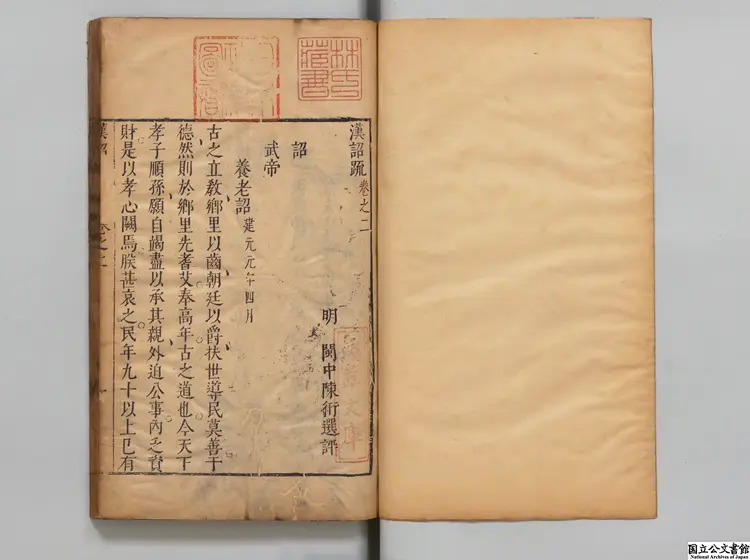 漢詔疏卷之二
明 閩中陳衎選評
詔
武帝
養老詔建元元年四月
古之立教鄉里以齒朝廷以爵扶世導民莫善于
德然則於鄉里先耆艾奉高年古之道也今天下
孝子順孫願自竭盡以承其親外迫公事內乏資
財是以孝心闕焉朕甚哀之民年九十以上已有
漢詔 卷之二
林氏
藏書
国立公文書館
National Archives of Japan